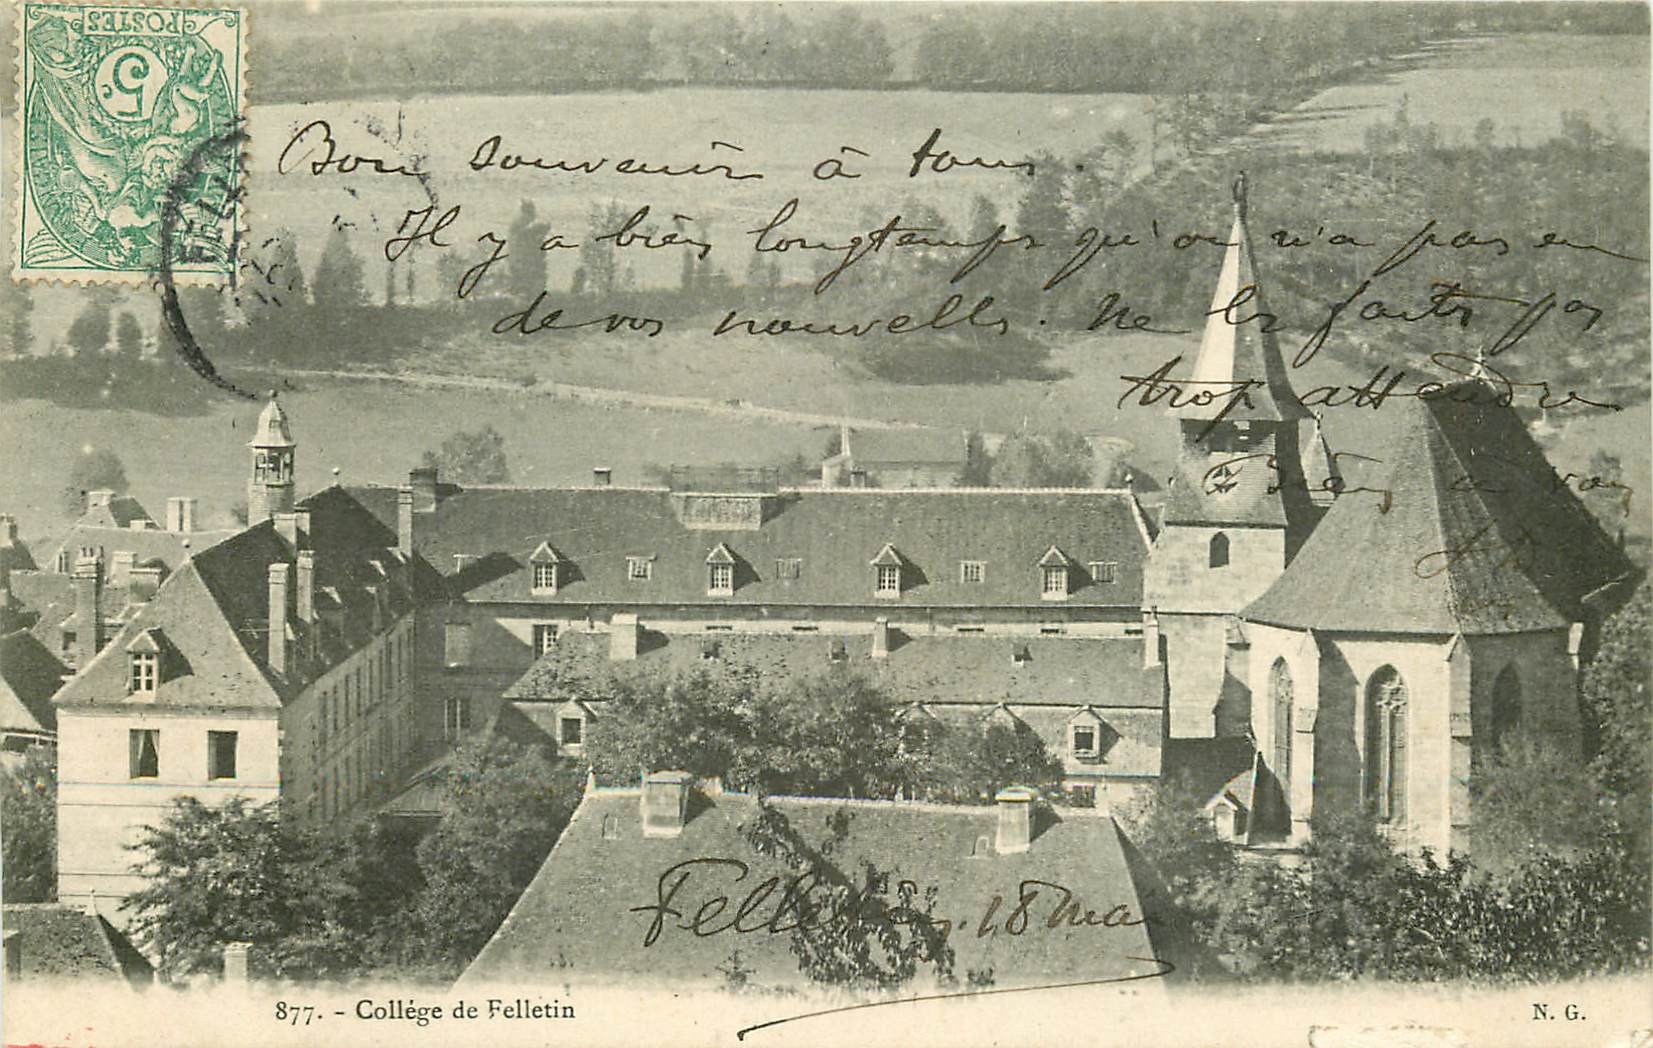 POSTES
5c
Bon souvenir à tous.
Il y a bien longtemps qu'on n'a pas eu
de vos nouvelles. Ne les faites pas
trop attendre
Bien à vous
Felletin, 18 Mai
877. - Collége de Felletin
N. G.